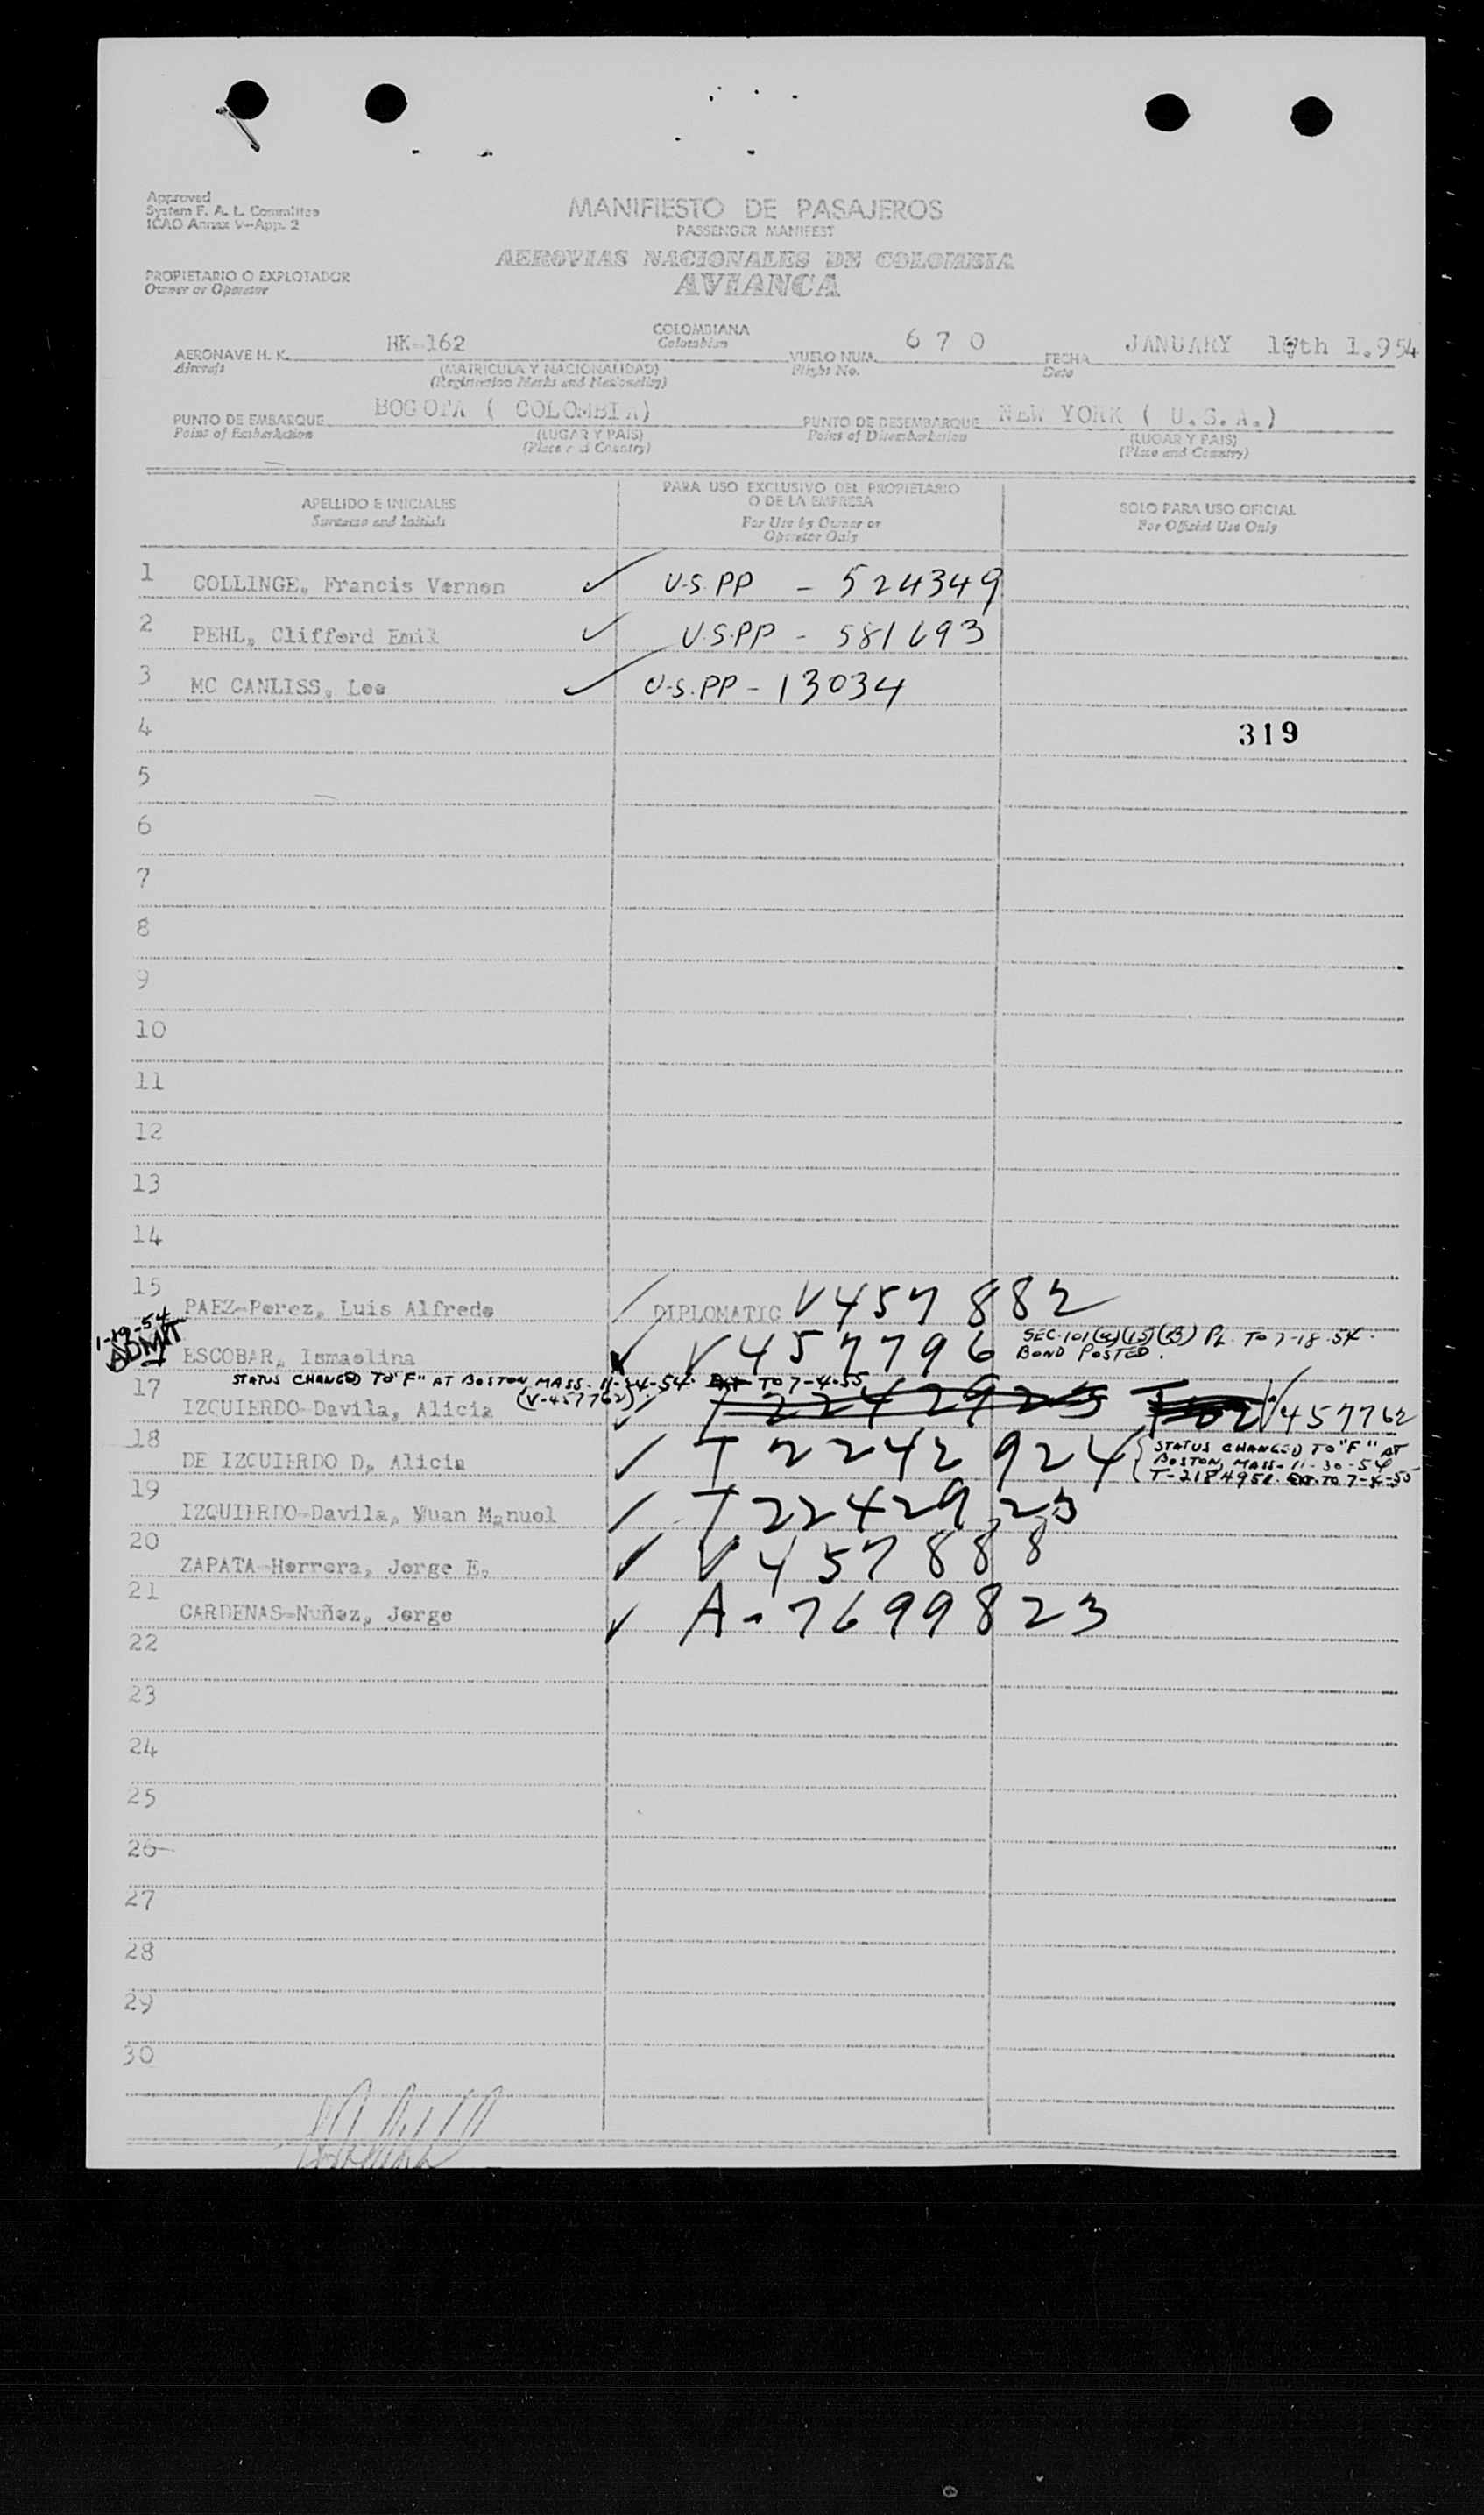 Approved
System F. A. L. Committee
ICAO Annex V-App. 2
MANIFIESTO DE PASAJEROS
PASSENGER MANIFEST
AEROVIAS NACIONALES DE COLOMBIA
AVIANCA
PROPIETARIO O EXPLOTADOR
Owner or Operator
AERONAVE H. K. HK-162 COLOMBIANA VUELO NUM. 670 FECHA JANUARY 1 th 1.954
Aircraft (MATRICULA Y NACIONALIDAD) Colombian Flight No. Date
(Registration Marks and Nationality)
PUNTO DE EMBARQUE BOGOTA ( COLOMBIA) PUNTO DE DESEMBARQUE NEW YORK ( U.S.A.)
Point of Embarkation (LUGAR Y PAIS) Point of Disembarkation (LUGAR Y PAIS)
(Place and Country) (Place and Country)
APELLIDO E INICIALES PARA USO EXCLUSIVO DEL PROPIETARIO O DE LA EMPRESA SOLO PARA USO OFICIAL
Surname and Initials For Use by Owner or Operator Only For Official Use Only
1 COLLINGE, Francis Vernon U.S. PP - 524349
2 PEHL, Clifford Emil U.S. PP - 581693
3 MC CANLISS, Lee U.S. PP - 13034
4 319
5
6
7
8
9
10
11
12
13
14
15
PAEZ-Perez, Luis Alfredo DIPLOMATIC V457882
1-19-54 ADMIT ESCOBAR, Ismaelina V457796 SEC. 101(a)(15)(B) PL. TO 7-18-54.
BOND POSTED.
17 STATUS CHANGED TO "F" AT BOSTON, MASS. 11-24-54. EXT TO 7-4-55
IZQUIERDO-Davila, Alicia (V-457762) V457762
18
DE IZQUIERDO D, Alicia T2242924 STATUS CHANGED TO "F" AT
BOSTON, MASS- 11-30-54
EXT. TO 7-4-55
19
IZQUIERDO-Davila, Juan Manuel T2242923
20
ZAPATA-Herrera, Jorge E. V457888
21
CARDENAS-Nuñez, Jorge A-7699823
22
23
24
25
26
27
28
29
30